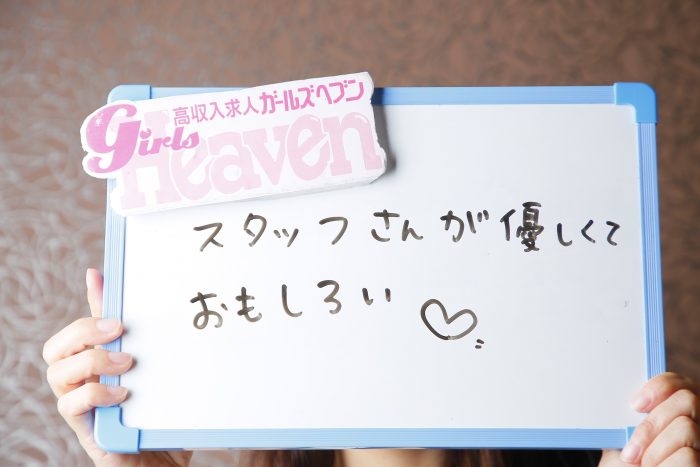 高収入求人ガールズヘブン
Girls
Heaven
スタッフさんが優しくて
おもしろい